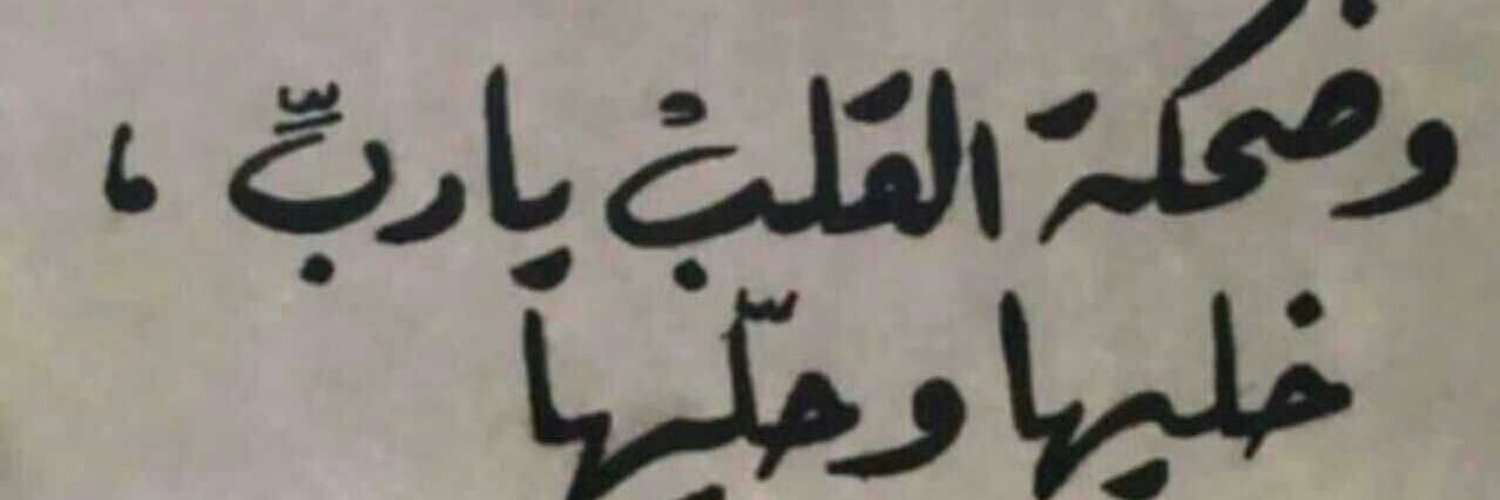 وضحكة القلبْ ياربِّ ،
خليها وحلّيها